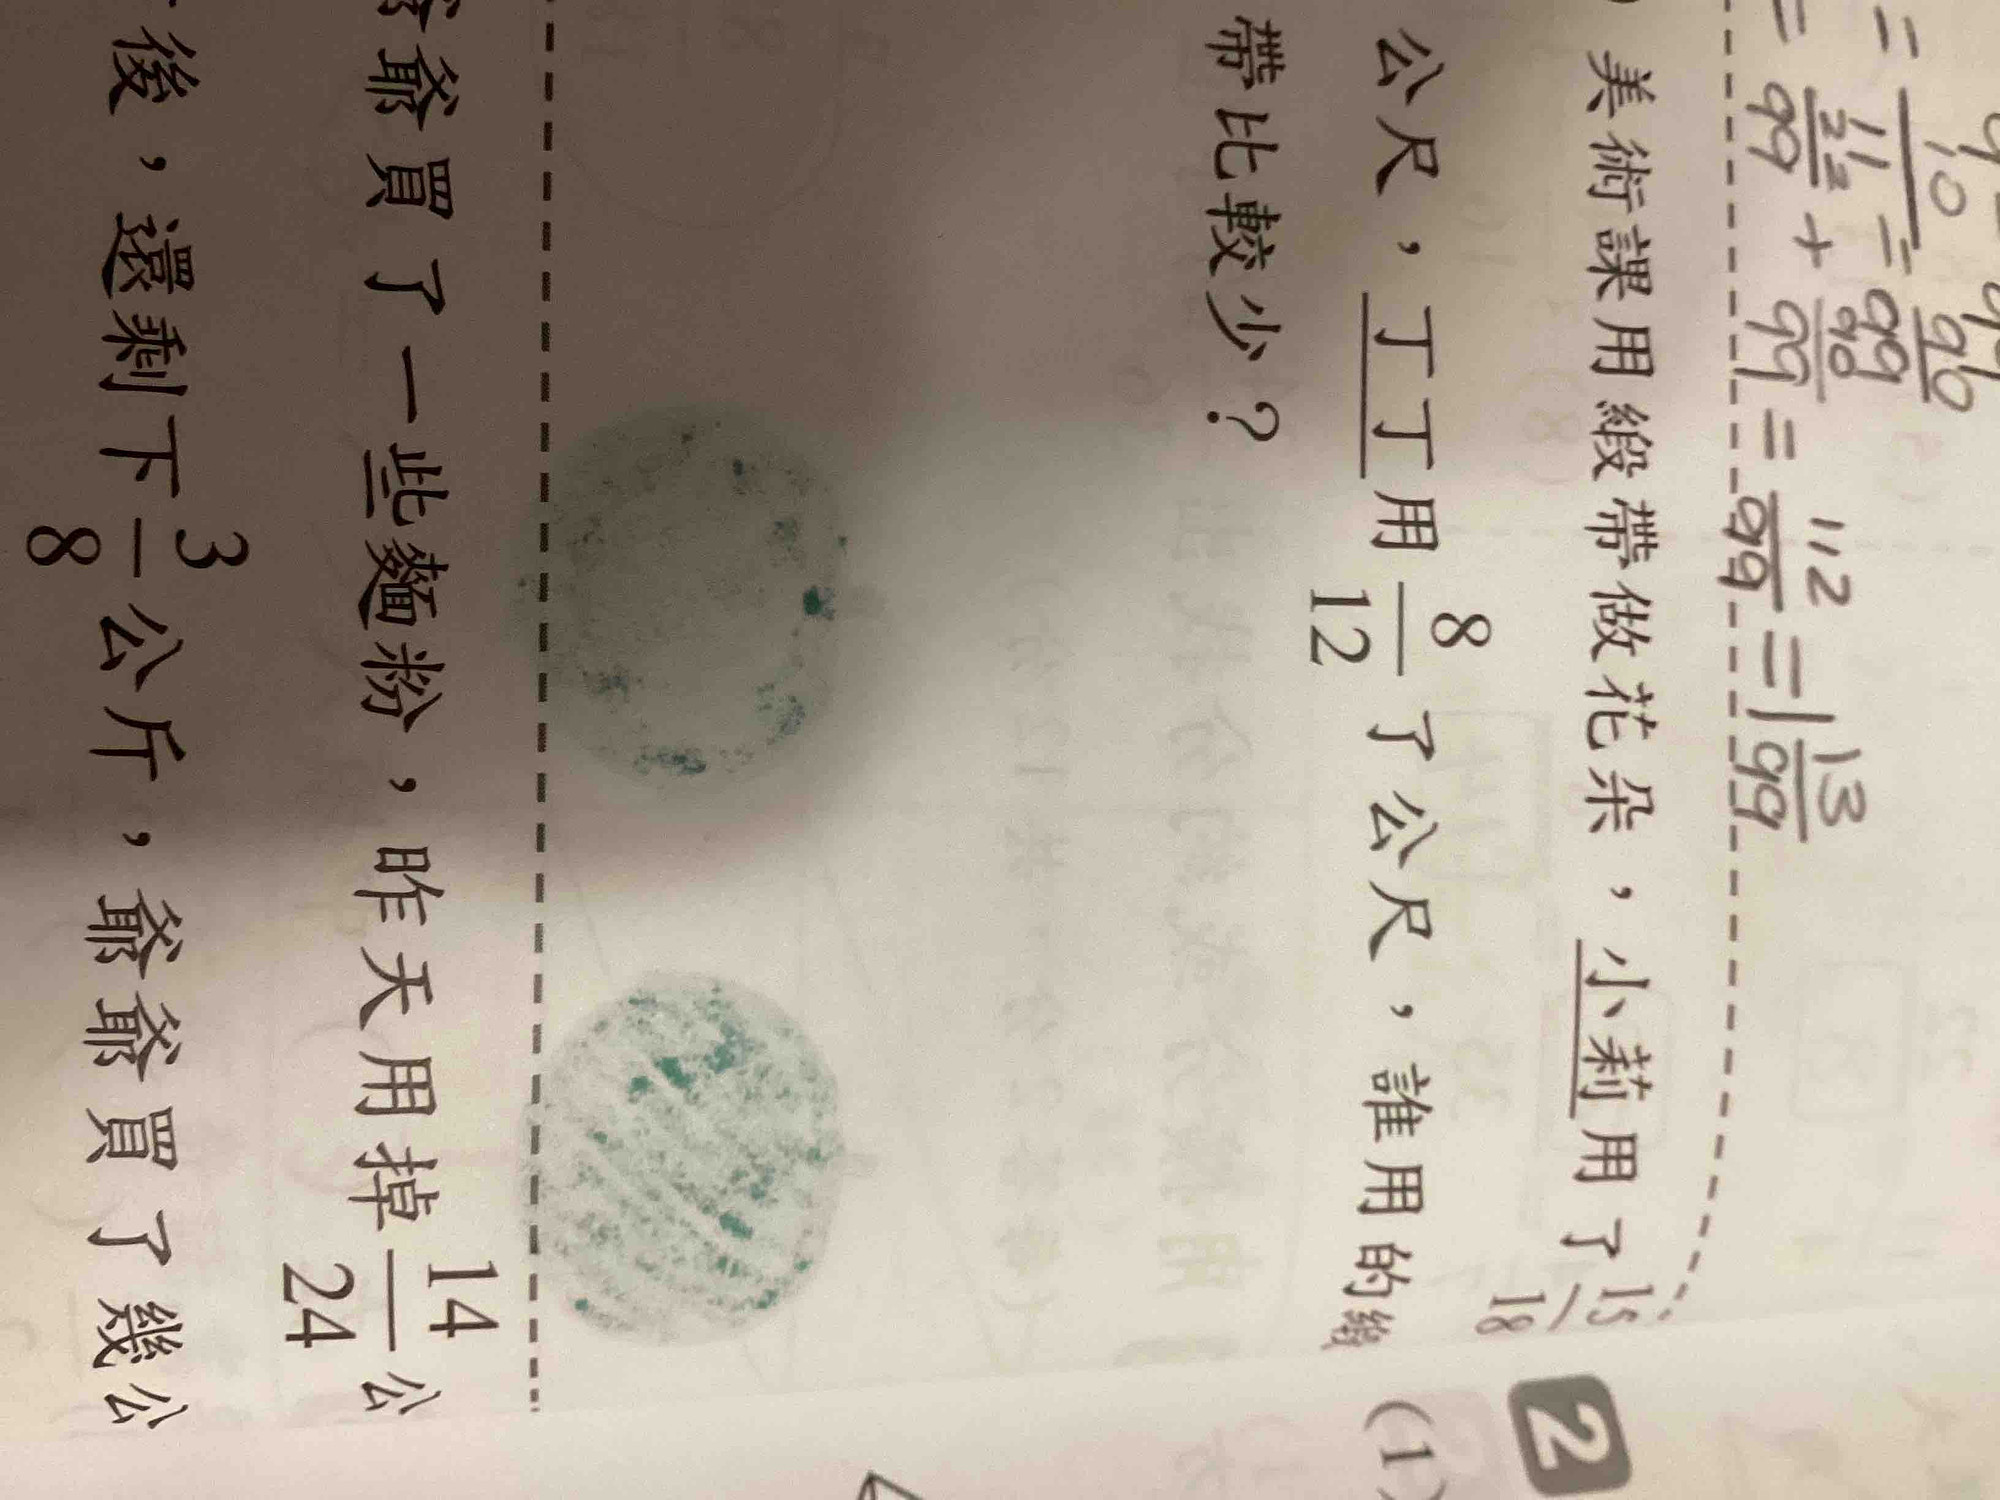 = 10/11 = 90/99
= 22/99 + 90/99 = 112/99 = 1 13/99
) 美術課用緞帶做花朵，小莉用了 15/18
公尺，丁丁用 8/12 了公尺，誰用的緞
帶比較少？
爺爺買了一些麵粉，昨天用掉 14/24 公
後，還剩下 3/8 公斤，爺爺買了幾公
2
(1)